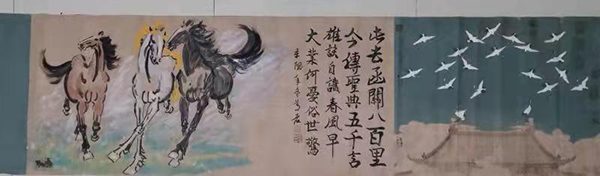 此去函關八百里
今傳聖典五千言
雄談自識春風早
大業何憂俗世驚